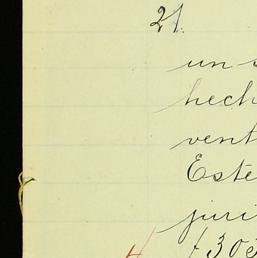 21.
un s
hech
vent
Este
juri
4 1303